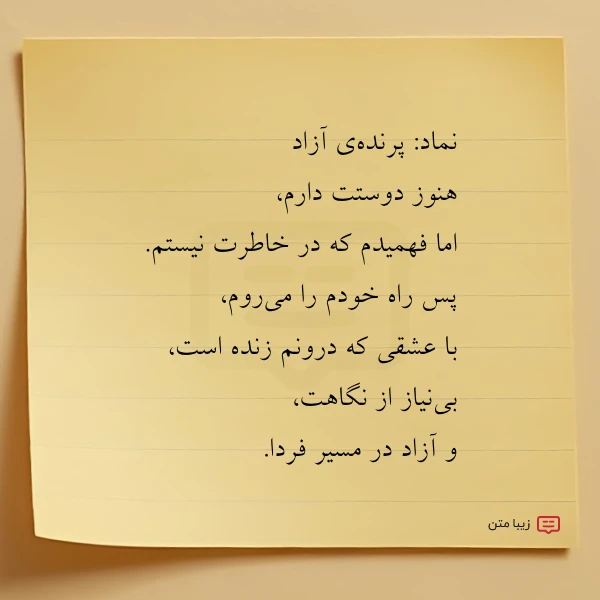 نماد: پرنده‌ی آزاد
هنوز دوستت دارم،
اما فهمیدم که در خاطرت نیستم.
پس راه خودم را می‌روم،
با عشقی که درونم زنده است،
بی‌نیاز از نگاهت،
و آزاد در مسیر فردا.
زیبا متن